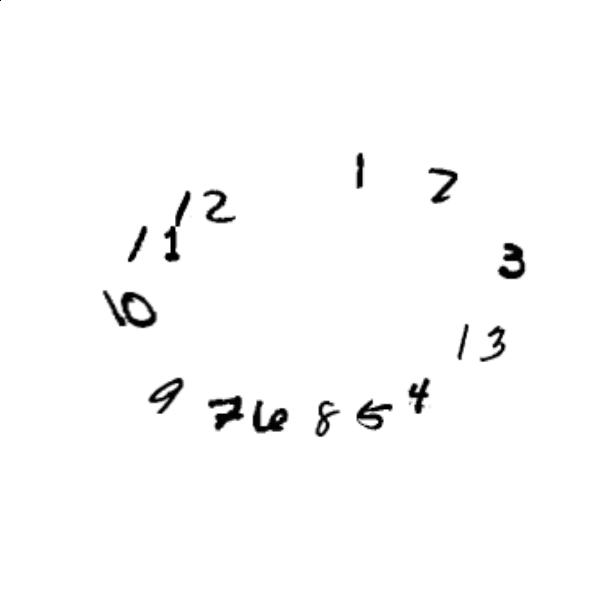 1 2
12
11
3
10
13
9 7 6 8 5 4